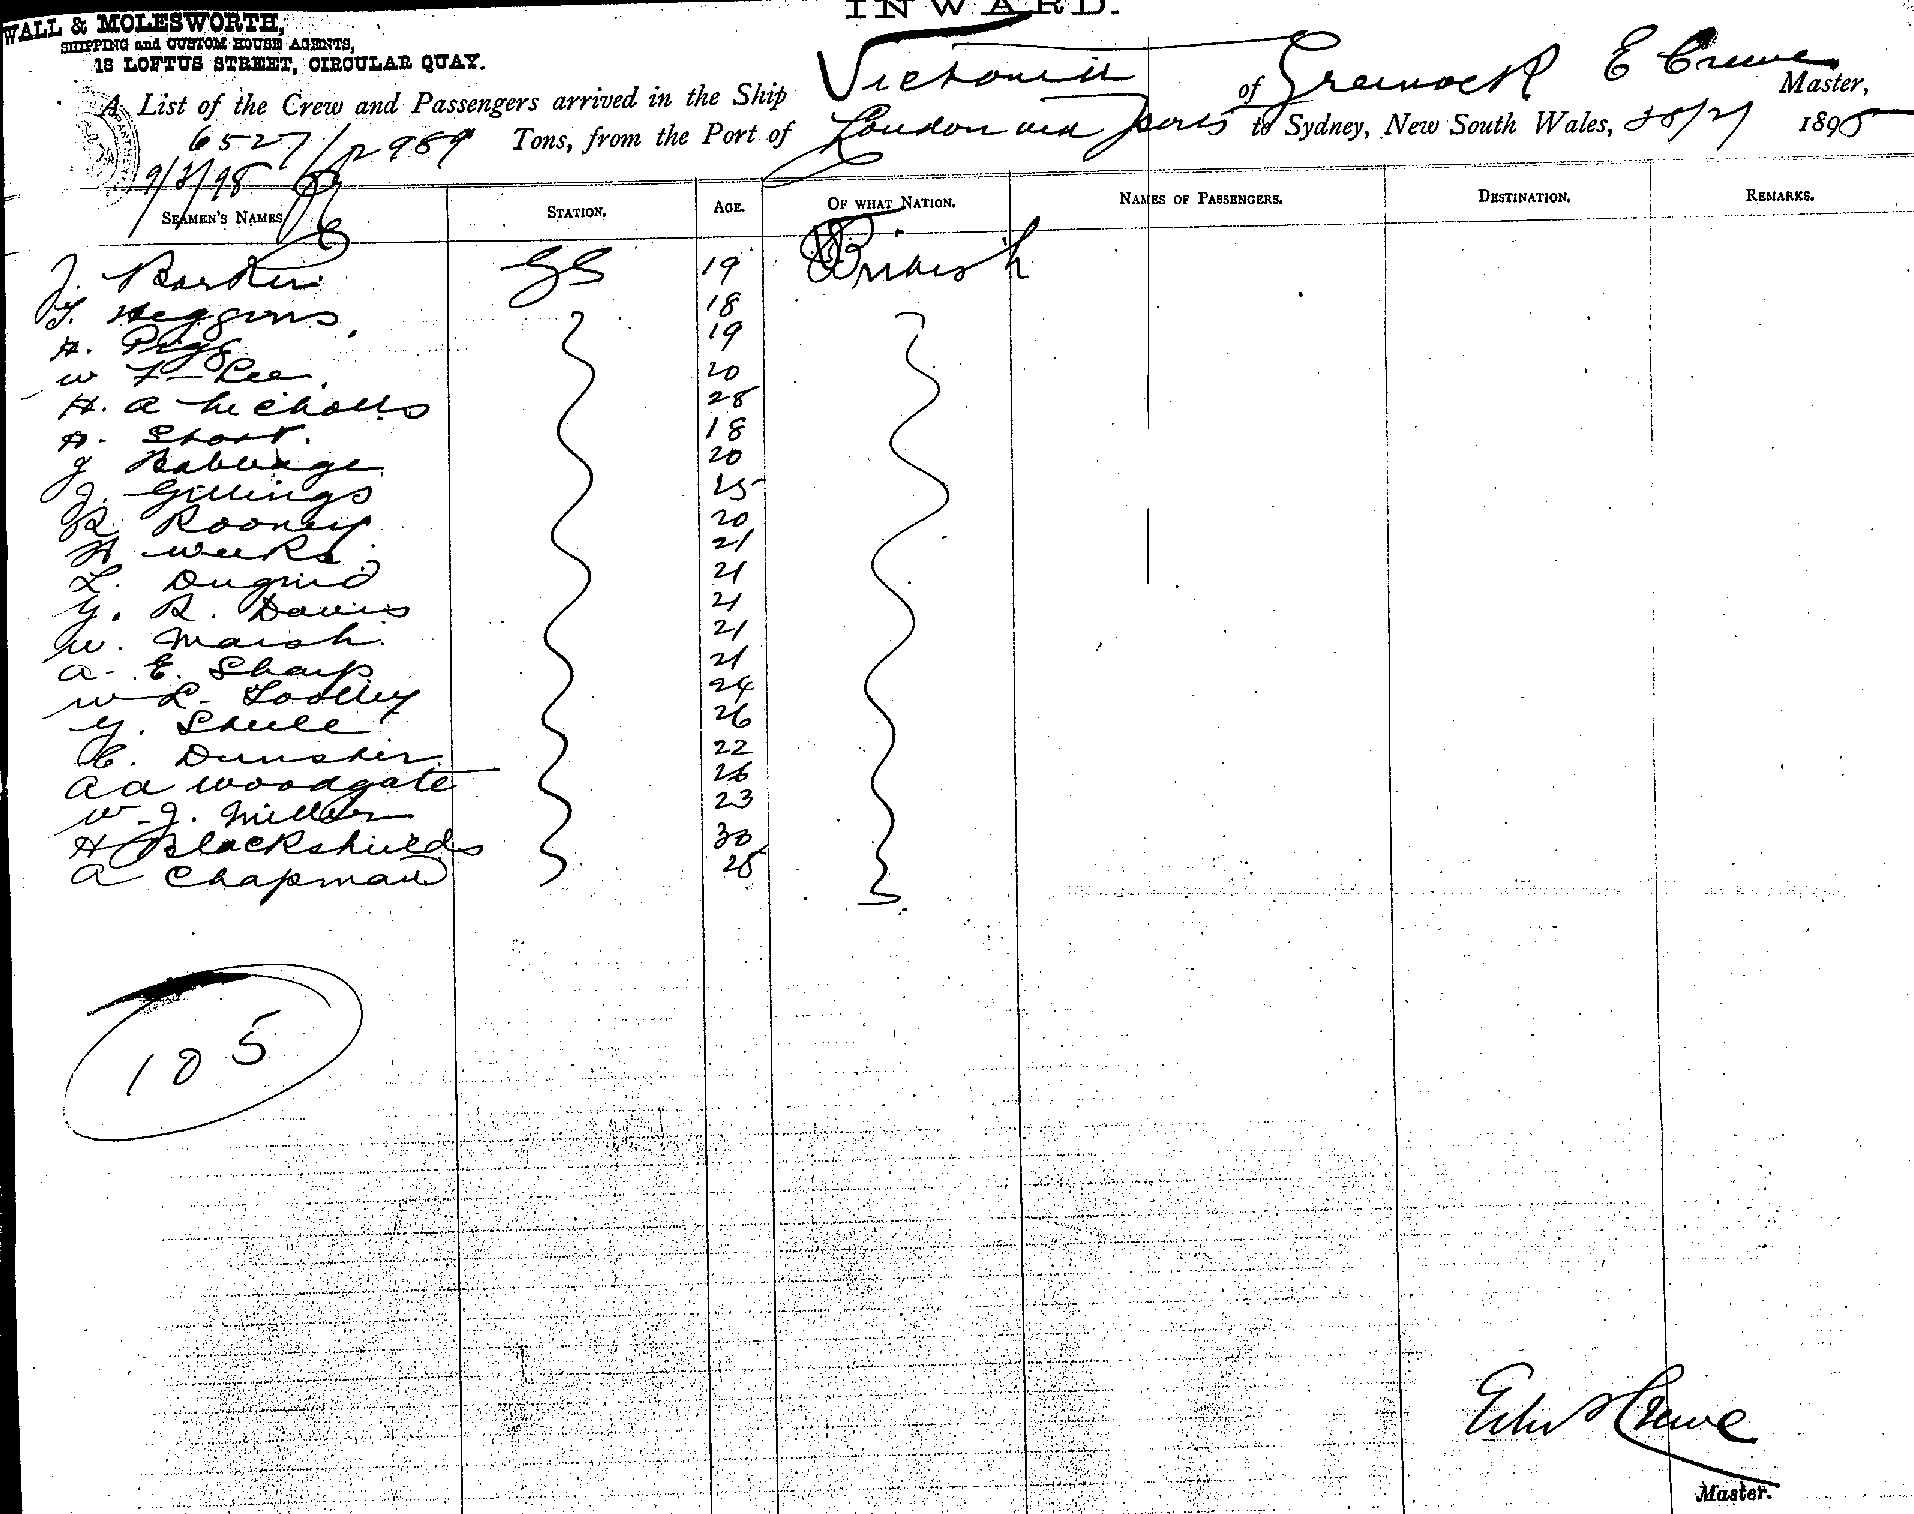 INWARD.
WALL & MOLESWORTH,
SHIPPING and CUSTOM HOUSE AGENTS,
18 LOFTUS STREET, CIRCULAR QUAY.
A List of the Crew and Passengers arrived in the Ship Victoria of Greenock E Crewe Master,
6527/2989 Tons, from the Port of London and ports to Sydney, New South Wales, 1898
9/3/98
SEAMEN'S NAMES STATION. AGE. OF WHAT NATION. NAMES OF PASSENGERS. DESTINATION. REMARKS.
J. Barker GS 19 British
T. Heggins 18
A. Pigg 19
W F Lee 20
H. A Nicholls 28
A. Short. 18
J Babbage 20
J. Gillings 25
R. Rooney 20
H Weeks 21
L. Duguid 21
G. R. Davis 21
W. Marsh 21
A. E. Sharp 21
W L. Toolley 24
G. 26
E. Dunster 22
A A Woodgate 26
W. J. Miller 23
H Blackshields 30
A Chapman 28
105
Crewe
Master.